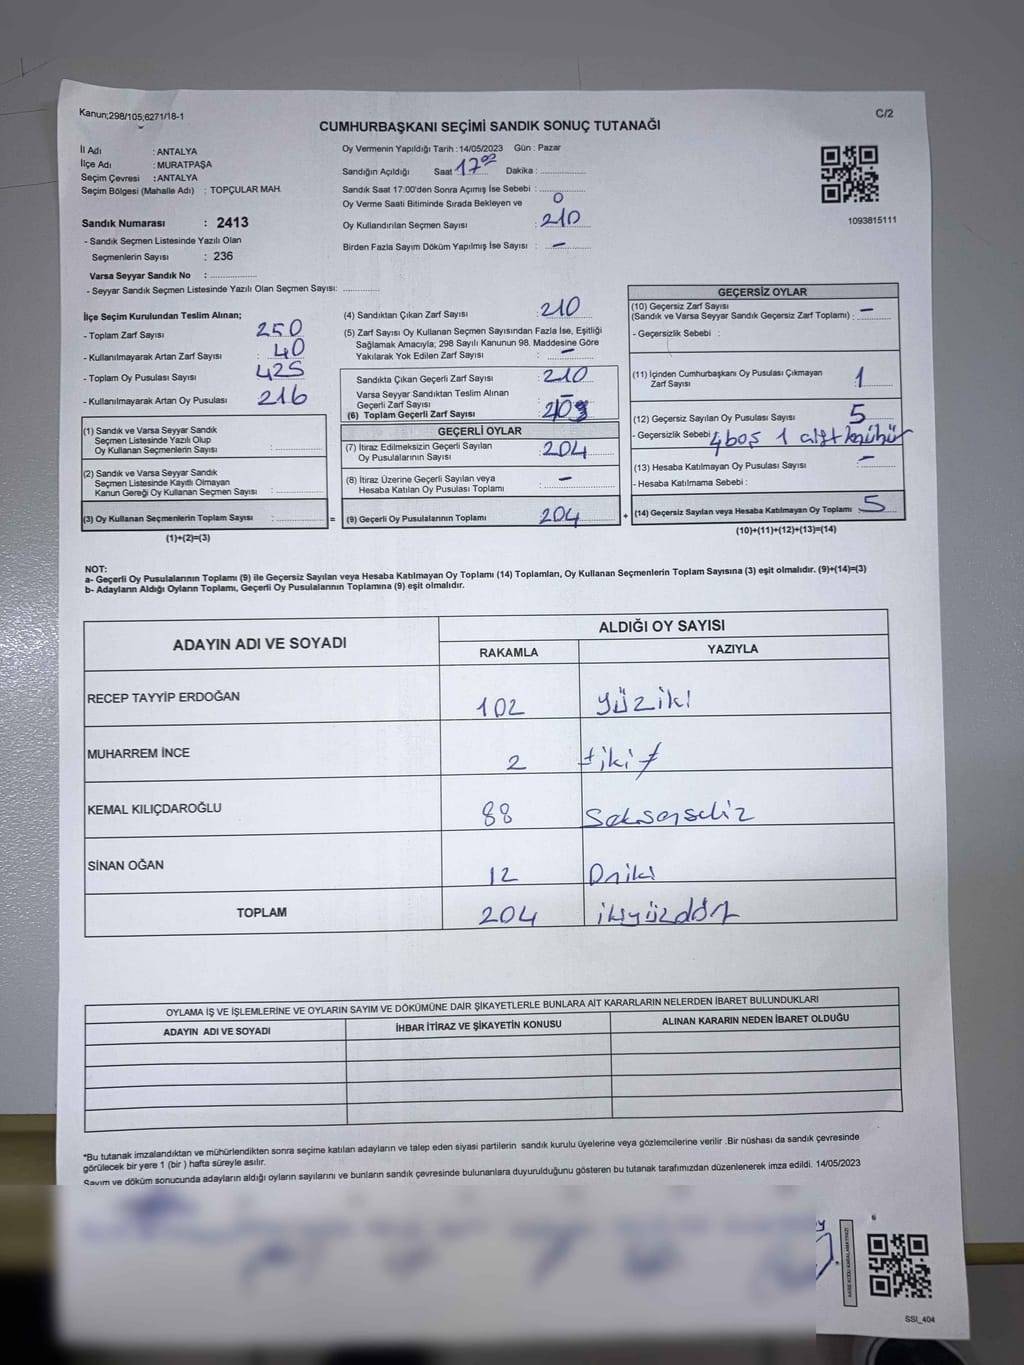 Kanun;298/105;6271/18-1
C/2
CUMHURBAŞKANI SEÇİMİ SANDIK SONUÇ TUTANAĞI
İl Adı : ANTALYA
İlçe Adı : MURATPAŞA
Seçim Çevresi : ANTALYA
Seçim Bölgesi (Mahalle Adı) : TOPÇULAR MAH.
Sandık Numarası : 2413
- Sandık Seçmen Listesinde Yazılı Olan
Seçmenlerin Sayısı : 236
Varsa Seyyar Sandık No : ..................
- Seyyar Sandık Seçmen Listesinde Yazılı Olan Seçmen Sayısı: ............
Oy Vermenin Yapıldığı Tarih : 14/05/2023 Gün : Pazar
Sandığın Açıldığı Saat 17 00 Dakika : ..................
Sandık Saat 17:00'den Sonra Açımış İse Sebebi : ..................
Oy Verme Saati Bitiminde Sırada Bekleyen ve 0
Oy Kullandırılan Seçmen Sayısı : 210
Birden Fazla Sayım Döküm Yapılmış İse Sayısı : –
1093815111
İlçe Seçim Kurulundan Teslim Alınan;
- Toplam Zarf Sayısı : 250
- Kullanılmayarak Artan Zarf Sayısı : 40
- Toplam Oy Pusulası Sayısı : 425
- Kullanılmayarak Artan Oy Pusulası : 216
(1) Sandık ve Varsa Seyyar Sandık
Seçmen Listesinde Yazılı Olup
Oy Kullanan Seçmenlerin Sayısı : ..................
(2) Sandık ve Varsa Seyyar Sandık
Seçmen Listesinde Kayıtlı Olmayan
Kanun Gereği Oy Kullanan Seçmen Sayısı : ..................
(3) Oy Kullanan Seçmenlerin Toplam Sayısı : .................. =
(1)+(2)=(3)
(4) Sandıktan Çıkan Zarf Sayısı : 210
(5) Zarf Sayısı Oy Kullanan Seçmen Sayısından Fazla İse, Eşitliği
Sağlamak Amacıyla; 298 Sayılı Kanunun 98. Maddesine Göre
Yakılarak Yok Edilen Zarf Sayısı : –
Sandıkta Çıkan Geçerli Zarf Sayısı : 210
Varsa Seyyar Sandıktan Teslim Alınan
Geçerli Zarf Sayısı : –
(6) Toplam Geçerli Zarf Sayısı :
GEÇERLİ OYLAR
(7) İtiraz Edilmeksizin Geçerli Sayılan
Oy Pusulalarının Sayısı : 204
(8) İtiraz Üzerine Geçerli Sayılan veya
Hesaba Katılan Oy Pusulası Toplamı : –
(9) Geçerli Oy Pusulalarının Toplamı 204 +
GEÇERSİZ OYLAR
(10) Geçersiz Zarf Sayısı
(Sandık ve Varsa Seyyar Sandık Geçersiz Zarf Toplamı) : –
- Geçersizlik Sebebi :
(11) İçinden Cumhurbaşkanı Oy Pusulası Çıkmayan
Zarf Sayısı : 1
(12) Geçersiz Sayılan Oy Pusulası Sayısı : 5
- Geçersizlik Sebebi 4 boş 1 çift mühür
(13) Hesaba Katılmayan Oy Pusulası Sayısı : –
- Hesaba Katılmama Sebebi :
(14) Geçersiz Sayılan veya Hesaba Katılmayan Oy Toplamı 5
(10)+(11)+(12)+(13)=(14)
NOT:
a- Geçerli Oy Pusulalarının Toplamı (9) ile Geçersiz Sayılan veya Hesaba Katılmayan Oy Toplamı (14) Toplamları, Oy Kullanan Seçmenlerin Toplam Sayısına (3) eşit olmalıdır. (9)+(14)=(3)
b- Adayların Aldığı Oyların Toplamı, Geçerli Oy Pusulalarının Toplamına (9) eşit olmalıdır.
ADAYIN ADI VE SOYADI
ALDIĞI OY SAYISI
RAKAMLA YAZIYLA
RECEP TAYYİP ERDOĞAN 102 yüziki
MUHARREM İNCE 2 iki
KEMAL KILIÇDAROĞLU 88 Seksensekiz
SİNAN OĞAN 12 Oniki
TOPLAM 204 ikiyüzdört
OYLAMA İŞ VE İŞLEMLERİNE VE OYLARIN SAYIM VE DÖKÜMÜNE DAİR ŞİKAYETLERLE BUNLARA AİT KARARLARIN NELERDEN İBARET BULUNDUKLARI
ADAYIN ADI VE SOYADI İHBAR İTİRAZ VE ŞİKAYETİN KONUSU ALINAN KARARIN NEDEN İBARET OLDUĞU
*Bu tutanak imzalandıktan ve mühürlendikten sonra seçime katılan adayların ve talep eden siyasi partilerin sandık kurulu üyelerine veya gözlemcilerine verilir .Bir nüshası da sandık çevresinde
görülecek bir yere 1 (bir ) hafta süreyle asılır.
Sayım ve döküm sonucunda adayların aldığı oyların sayılarını ve bunların sandık çevresinde bulunanlara duyurulduğunu gösteren bu tutanak tarafımızdan düzenlenerek imza edildi. 14/05/2023
SSI_404